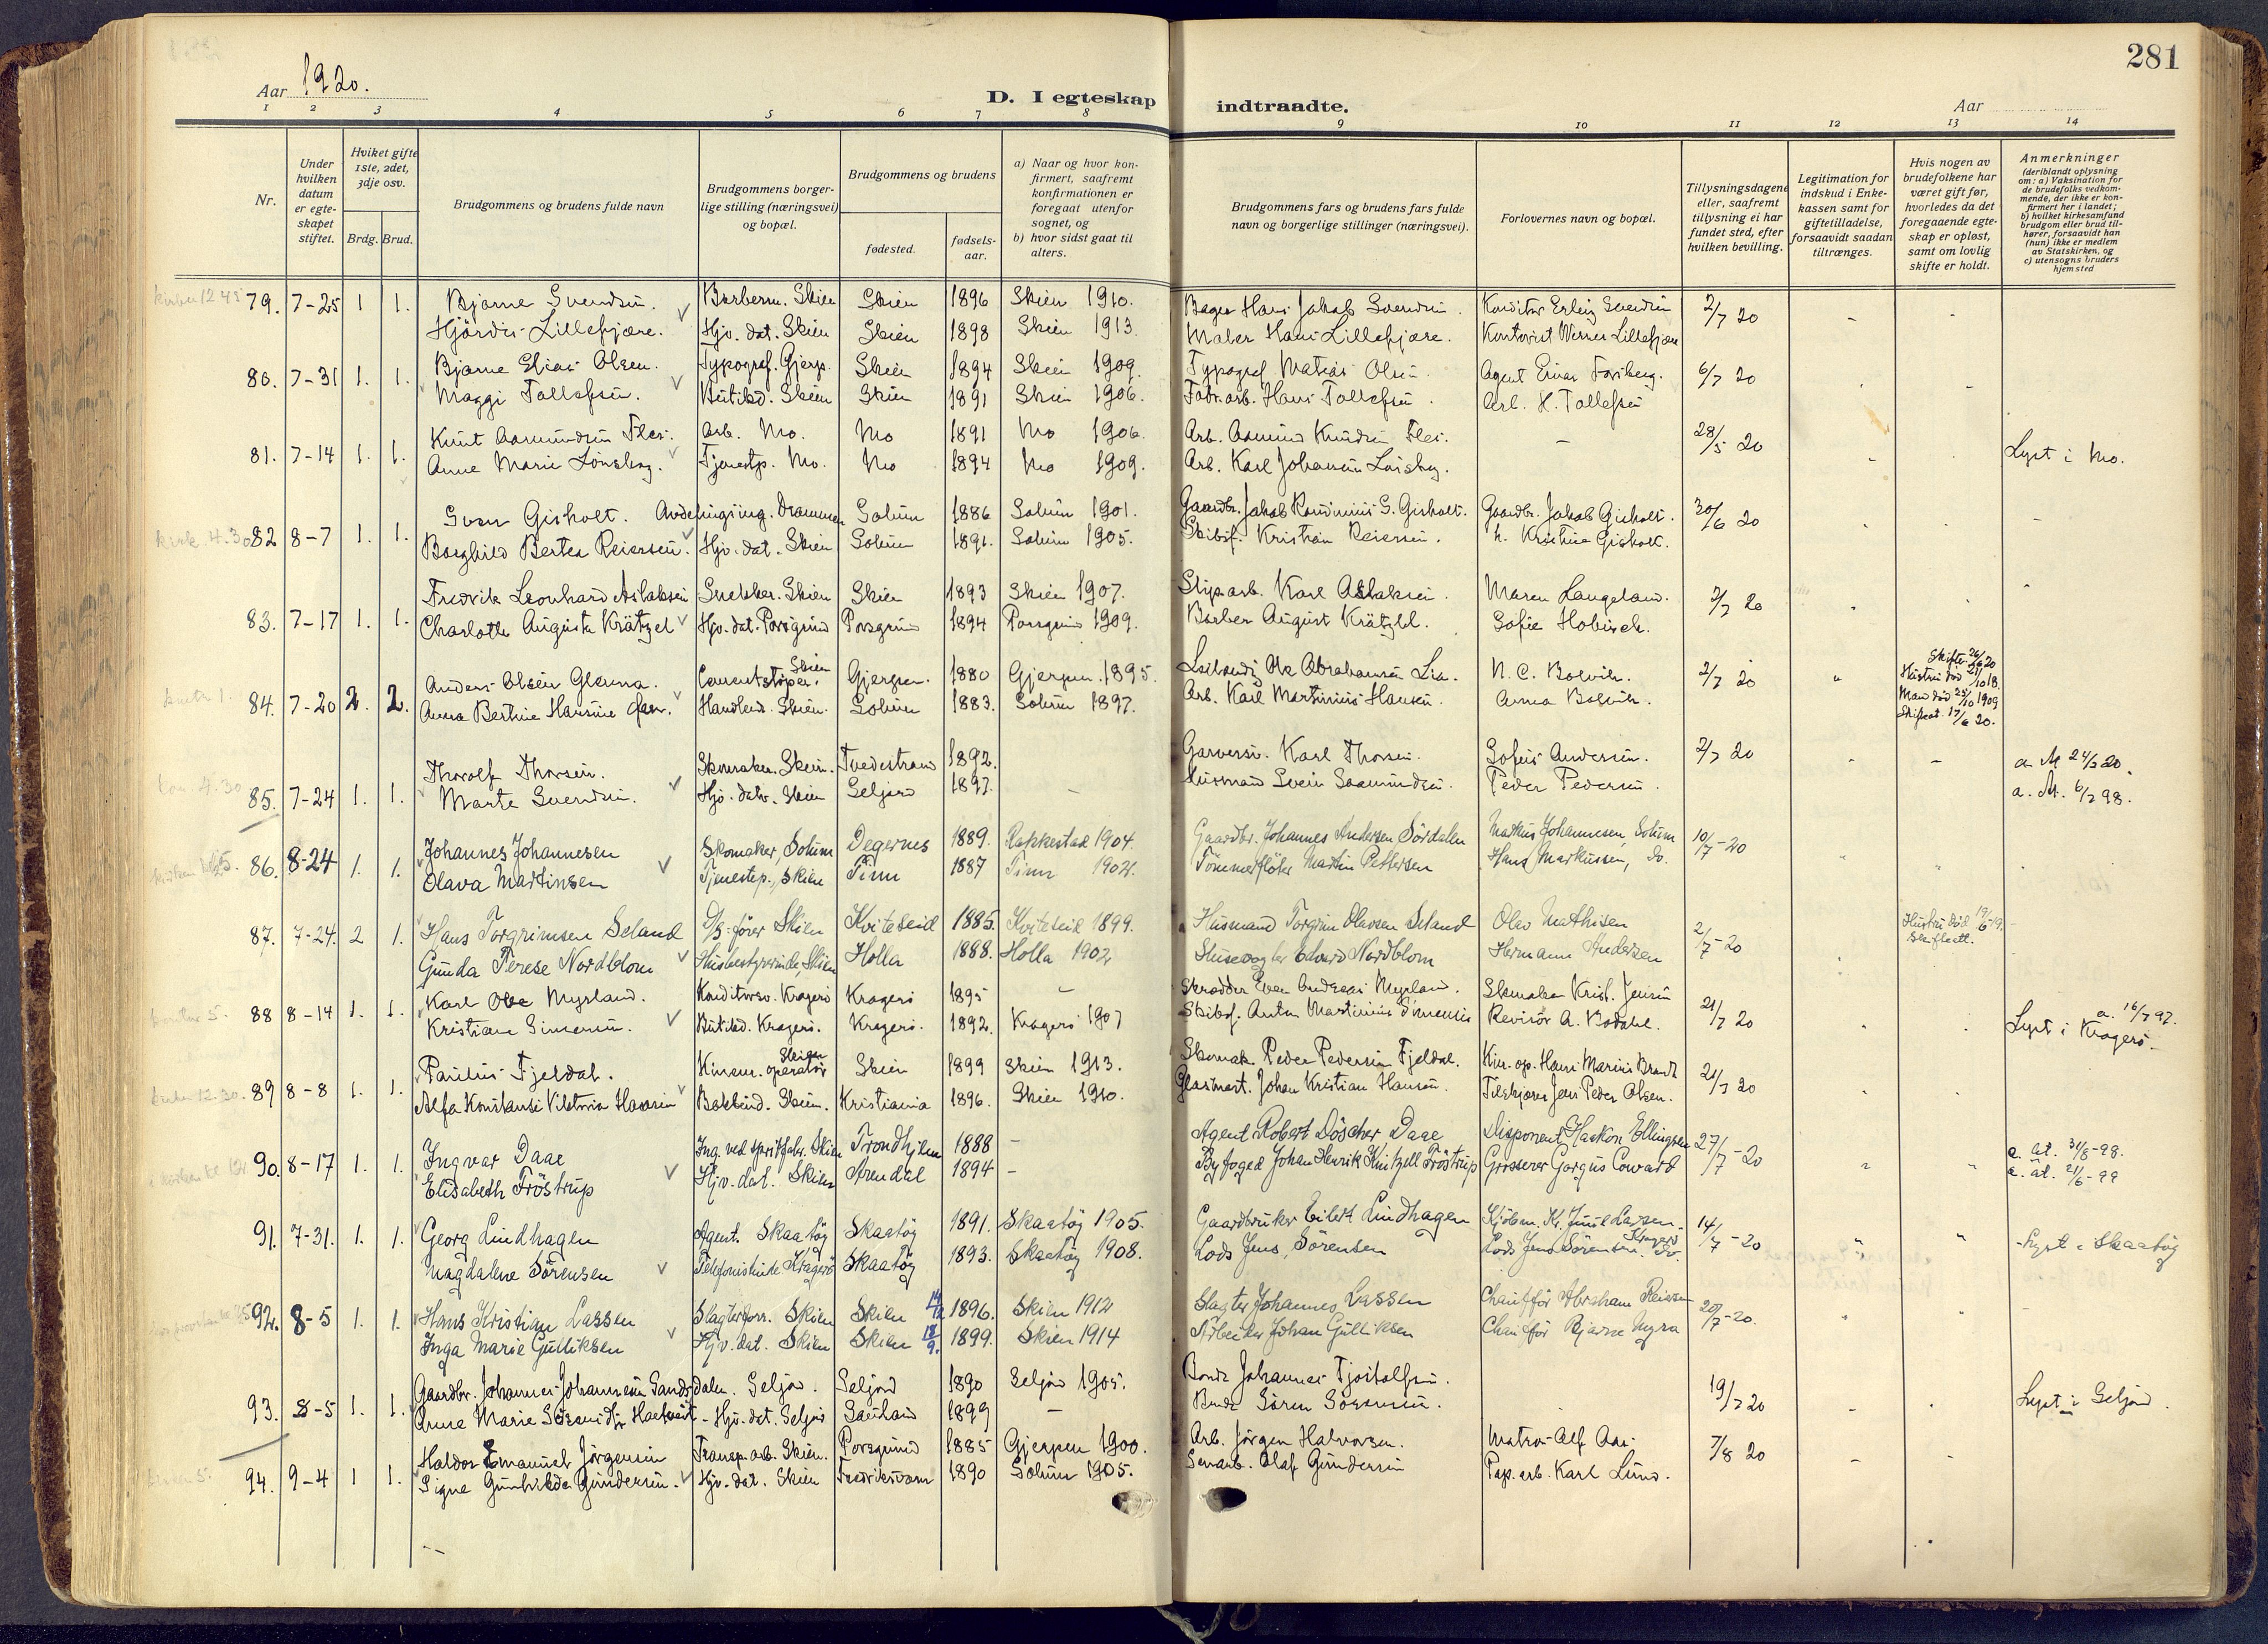 281
Aar 1920.
D. I egteskap indtraadte.
Aar
1 2 3 4 5 6 7 8 9 10 11 12 13 14
Nr.
Under hvilken datum er egteskapet stiftet.
Hviket gifte 1ste, 2det, 3dje osv.
Brdg. Brud.
Brudgommens og brudens fulde navn
Brudgommens borgerlige stilling (næringsvei) og bopæl.
Brudgommens og brudens
fødested.
fødselsaar.
a) Naar og hvor konfirmert, saafremt konfirmationen er foregaat utenfor sognet, og
b) hvor sidst gaat til alters.
Brudgommens fars og brudens fars fulde navn og borgerlige stillinger (næringsvei).
Forlovernes navn og bopæl.
Tillysningsdagene eller, saafremt tillysning ei har fundet sted, efter hvilken bevilling.
Legitimation for indskud i Enkekassen samt for giftetilladelse, forsaavidt saadan tiltrænges.
Hvis nogen av brudefolkene har været gift før, hvorledes da det foregaaende egteskap er opløst, samt om lovlig skifte er holdt.
Anmerkninger (deriblandt oplysning om: a) Vaksination for de brudefolks vedkommende, der ikke er konfirmert her i landet; b) hvilket kirkesamfund brudgom eller brud tilhører, forsaavidt han (hun) ikke er medlem av Statskirken, og c) utensogns bruders hjemsted
79. 7-25 1 1. Bjarne Svendsen. Barberm. Skien Skien 1896 Skien 1910. Bager Hans Jakob Svendsen. Konditor Erling Svendsen 2/7 20
Hjördis Lillefjære. Hjv. dat. Skien Skien 1898 Skien 1913 Maler Hans Lillefjære. Kontorist Werner Lillefjære
80. 7-31 1. 1. Bjarne Elias Olsen. Typograf. Gjerp. Skien 1894 Skien 1909. Typograf Matias Olsen. Agent Einar Forsberg. 6/7 20
Maggi Tollefsen. Butikd. Skien Skien 1891 Skien 1906. Fabr. arb. Hans Tollefsen. Arb. H. Tollefsen
81. 7-14 1. 1. Knut Aamundsen Fles. Arb. Mo. Mo 1891 Mo 1906. Arb. Aamund Knudsen Fles. 28/5 20 Lyst i Mo.
Anne Marie Lönsberg. Tjenestp. Mo. Mo 1894 Mo 1909. Arb. Karl Johansen
82 8-7 1. 1. Sven Gisholt. Avdelingsing. Drammen Solum 1886 Solum 1901. Gaardbr. Jakob G. Gisholt. Gaardbr. Jakob Gisholt. 30/6 20
Borghild Bertea Reiersen. Hjv. dat. Skien Solum 1891. Solum 1905. Skibsf. Kristian Reiersen. Kristine Gisholt.
83. 7-17 1. 1. Fredrik Leonhard Aslaksen Snekker. Skien Skien 1893 Skien 1907. Slip. arb. Karl Aslaksen. Maren Langeland. 2/7 20
Charlotte Augusta Krätzel Hjv. dat. Porsgrund Porsgrund 1894 Porsgrund 1909. Barber August Krätzel. Sofie
84. 7-20 2. 2. Anders Olsen Glenna. Cementstøper. Skien Gjerpen. 1880 Gjerpen. 1895. Ole Abrahamsen Lia. N. C. Bolvik. 2/7 20 Skifte 26/6 20 Hustru død 21/10 18.
Anna Bertine Hansine Handlend. Skien. Solum 1883. Solum 1897. Arb. Karl Martinius Hansen. Anna Bolvik. Man død 25/10 1909 Skiftet 17/6 20.
85. 7-24 1. 1. Thorolf Thorsen. Skomaker. Skien. Tvedestrand 1892. Garversv. Karl Thorsen. Sofus Andersen. 2/7 20 a. At 24/5 20.
Marte Svendsen. Hjv. datr. Skien Seljord 1897. Husmand Svein Saamundsen. Peder Pedersen. a. At. 6/7 98.
86. 8-24 1. 1. Johannes Johannesen Skomaker, Solum Degernes 1889. Rakkestad 1904. Gaardbr. Johannes Andersen Sördalen Markus Johannesen, Solum 10/7-20
Olava Martinsen Tjenestep., Skien Tinn 1887 Tinn 1902. Tömmerflöter Martin Pettersen Hans Markussen, do.
87. 7-24. 2 1. Hans Torgrimsen Seland fører Skien Kviteseid 1885. Kviteseid 1899. Husmand Torgrim Olavsen Seland Olav Mathisen 2/7-20 Hustru død Skiftet.
Gunda Terese Nordblom Husbestyrerinde, Skien Holla 1888. Holla 1902 Edvard Nordblom Hermann Andersen
88 8-14 1. 1. Karl Olbe Myrland. Konditorsv. Kragerö Kragerö 1895 Skrædder Even Andreas Myrland. Skomaker Krist. Jensen 21/7 20 a. 16/7 97.
Kristiane Simonsen. Butikd. Kragerö. Kragerö. 1892. Kragerö 1907 Skibsf. Anton Martinius Simonsen Revisör A. Bodahl. Lyst i Kragerö.
89 8-8 1. 1. Paulus Fjeldal. Kinem. operatör Skien Skien 1899 Skien 1913. Skomak. Peder Pedersen Fjeldal. Kin. op. Hans Marius Brandt 21/7 20
Alfa Konstanse Viktoria Hansen Bokbind. Skien. Kristiania 1896. Skien 1910. Glasmest. Johan Kristian Hansen. Jens Peder Olsen.
90. 8-17 1. 1. Ingvar Daae Ing. ved spritfabr. Skien Trondhjem 1888 Agent Robert Döscher Daae Disponent Haakon Ellingsen 27/7-20 a. at. 31/8-98.
Elisabeth Tröstrup Hjv. dat. Skien Arendal 1894 Byfoged Johan Henrik Kintzell Fröstrup Grosserer Gorgus Coward a. at. 21/6-99
91. 7-31. 1. 1. Georg Lindhagen Agent. Skaatöy Skaatöy 1891. Skaatöy 1905. Gaardbruker Eilert Lindhagen Kjöbm. Kr. Juul Larsen. Kragerö 14/7-20 Lyst i Skaatöy
Magdalene Sörensen Telefonistinde Kragerö Skaatöy 1893. Skaatöy 1908. Lods Jens Sörensen Lods Jens Sörensen. do.
92. 8-5 1. 1. Hans Kristian Lassen Slagterforr. Skien Skien 1896. Skien 1912 Slagter Johannes Lassen Chaufför Abraham Reiersen 20/7-20.
Inga Marie Gulliksen Hjv. dat. Skien Skien 18/9. 1899. Skien 1914 Arbeider Johan Gulliksen Chaufför Bjarne Myra
93. 8-5 1. 1. Gaardbr. Johannes Johannesen Sandsdalen. Seljord. Seljord 1890 Seljord 1905. Bonde Johannes Tjostolfsen. 19/7 20 Lyst i Seljord.
Anna Marie Hjv. dat. Seljord Sauland 1899 Bonde Sören Sörensen.
94. 9-4 1 1. Haldor Emanuel Jörgensen Transp. arb. Skien. Porsgrund 1885 Gjerpen 1900. Arb. Jörgen Halvorsen. Matros Alf Aas. 7/8 20
Signe Gunhilda Gundersen. Hjv. dat. Skien Fredriksvern 1890 Solum 1905. Olaf Gundersen Pap. arb. Karl Lund.